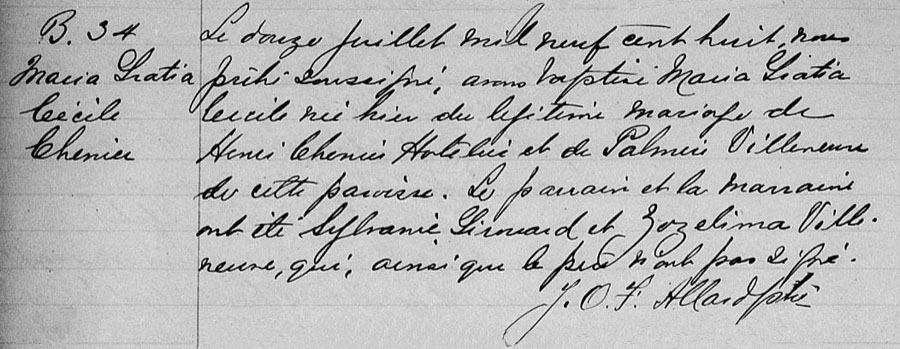 B. 34
Maria Gratia
Cécile
Chenier
Le douze juillet mil neuf cent huit, nous
prêtre soussigné, avons baptisé Maria Gratia
Cécile née hier du légitime mariage de
Henri Chenier Hotelier et de Palmire Villeneuve
de cette paroisse. Le parrain et la marraine
ont été Sylvanie Girouard et Zozelima Ville-
neuve, qui, ainsi que le père n'ont pas signé.
J. O. F. Allard ptre